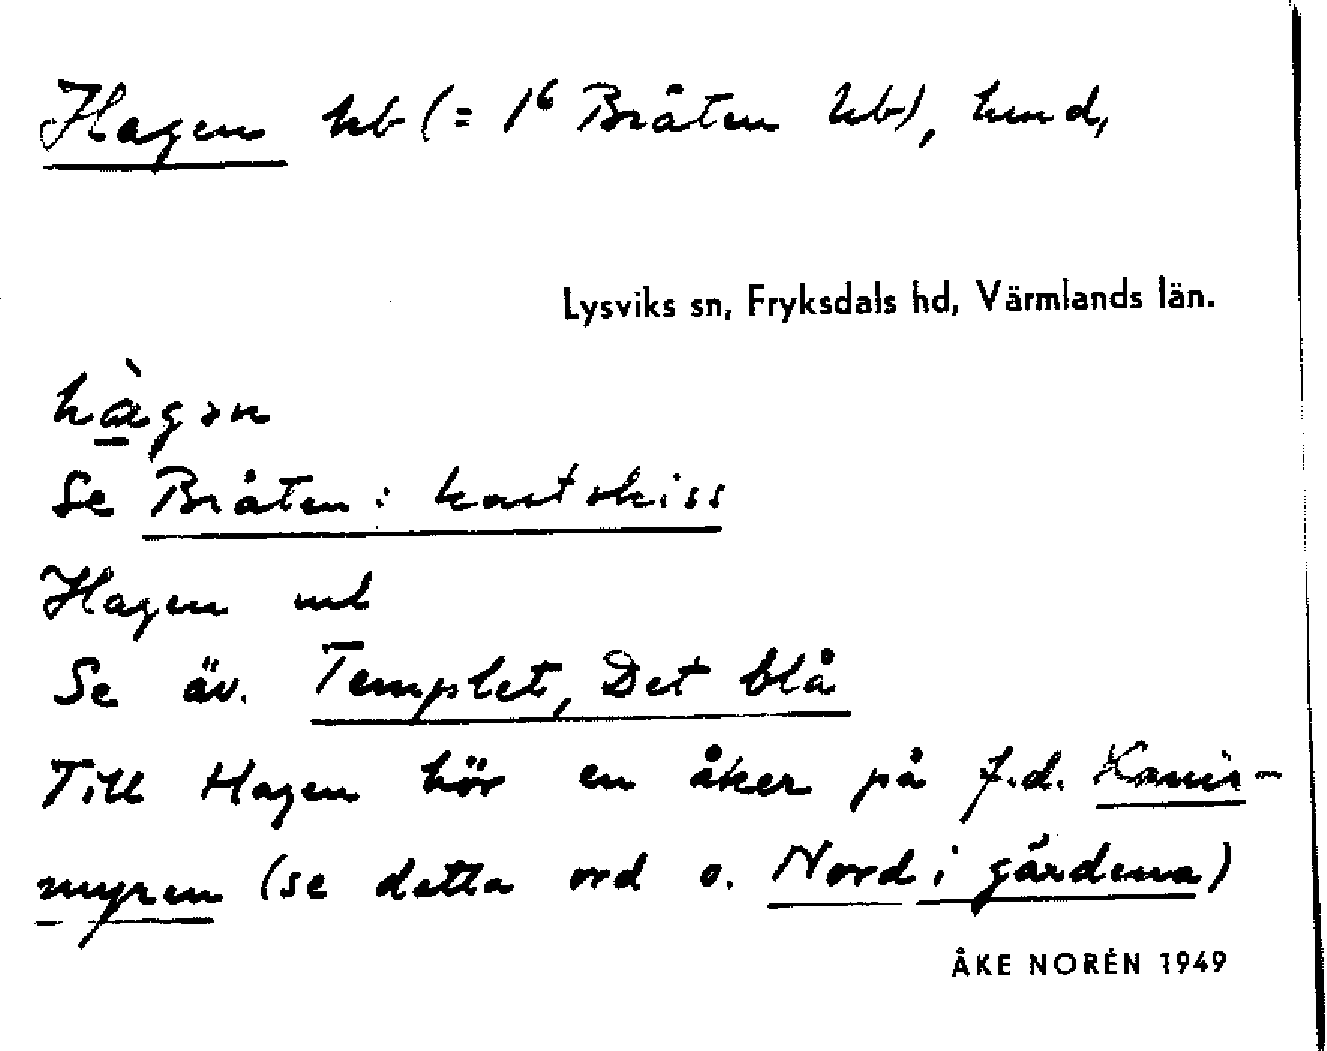 Hagen hb (= 1⁶ Bråten hb), hmd,
Lysviks sn, Fryksdals hd, Värmlands län.
hàgən
Se Bråten: kartskiss
Hagen ml
Se äv. Templet, Det blå
Till Hagen hör en åker på f.d.
myren (se detta ord o. Nord i gårdena)
ÅKE NORÉN 1949